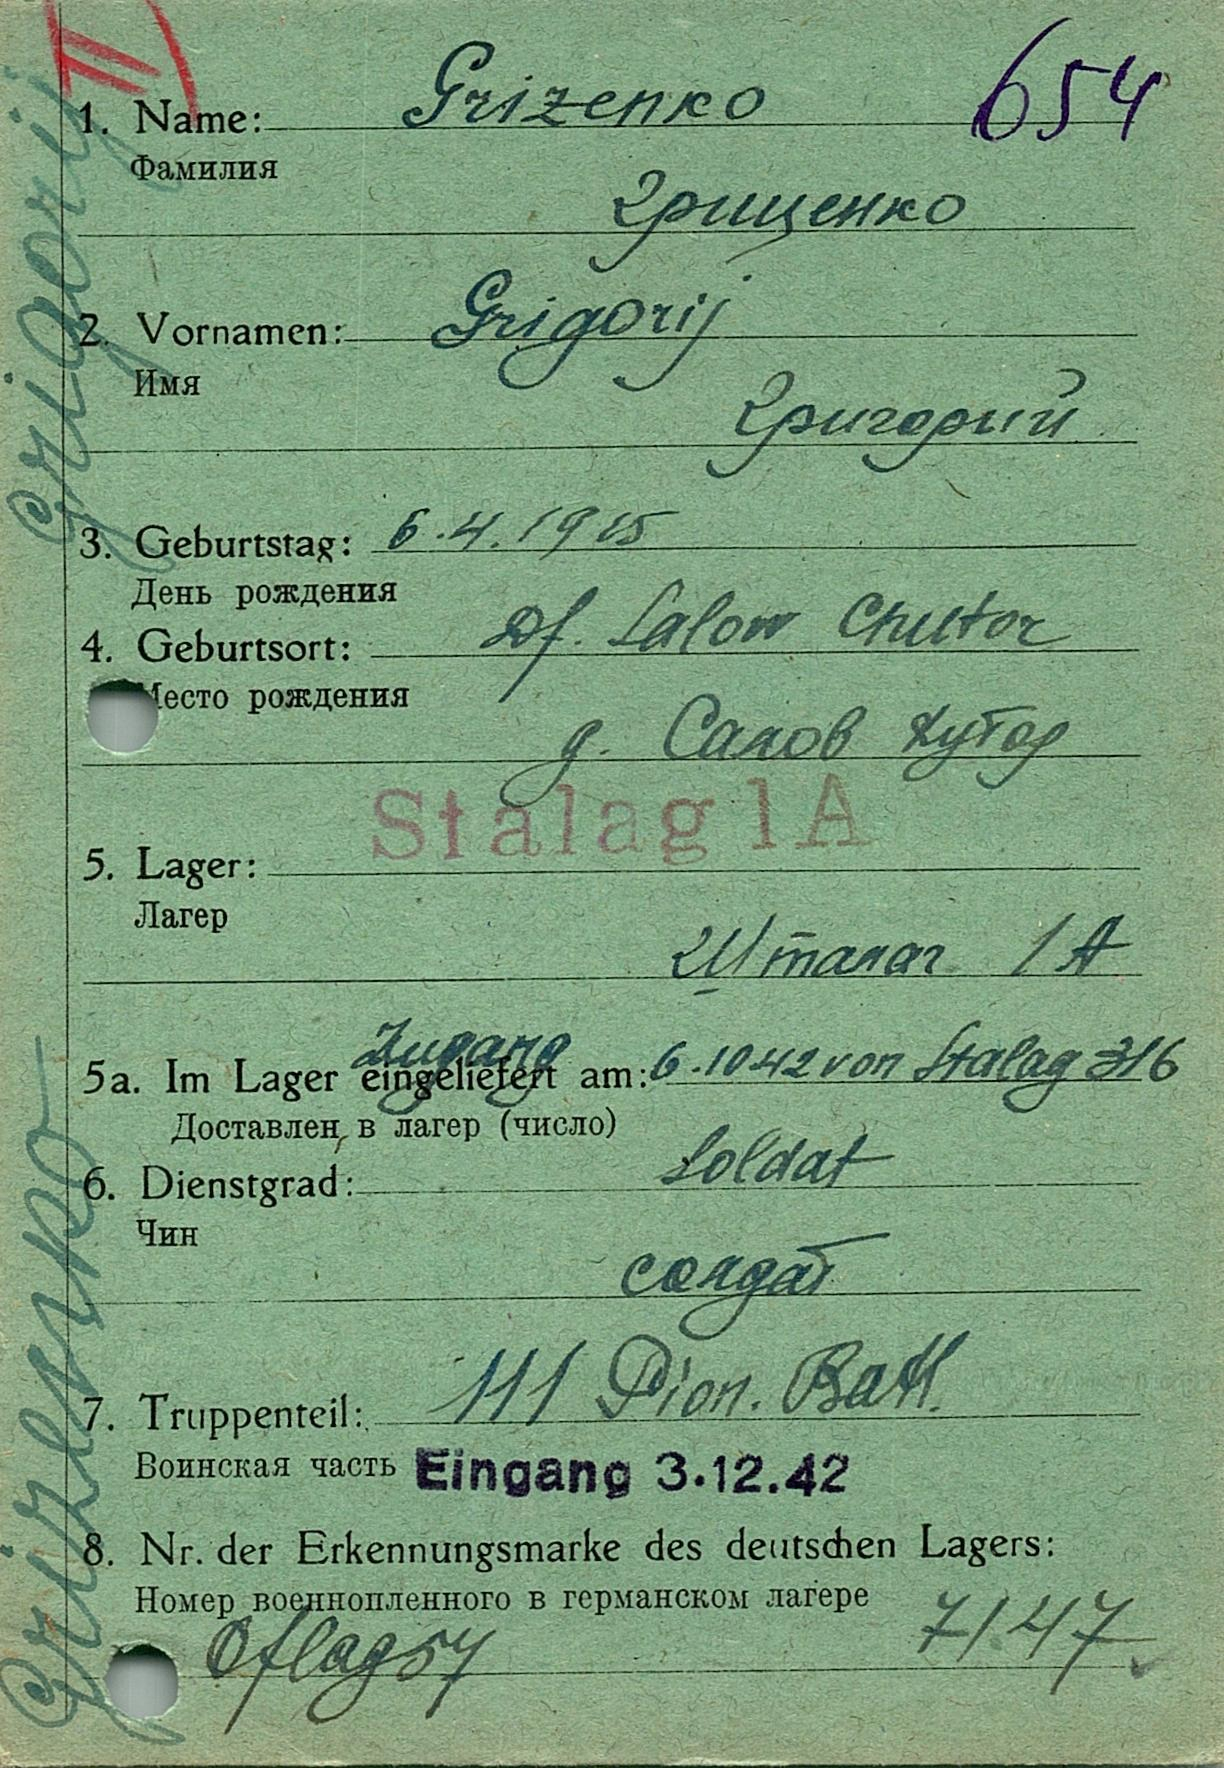 II
654
1. Name: Grizenko
Фамилия
Грищенко
2. Vornamen: Grigorij
Имя
Григорий
3. Geburtstag: 6.4.1915
День рождения
4. Geburtsort: Df. Salow Chutor
Место рождения
д. Салов Хутор
Stalag 1 A
5. Lager:
Лагер
Шталаг 1 А
Zugang
5a. Im Lager eingeliefert am: 6.10.42 von Stalag 316
Доставлен в лагер (число)
6. Dienstgrad: Soldat
Чин
солдат
7. Truppenteil: 111 Pion. Batl.
Воинская часть
Eingang 3.12.42
8. Nr. der Erkennungsmarke des deutschen Lagers:
Номер военнопленного в германском лагере
Oflag 57 7147
Grizenko Grigorij